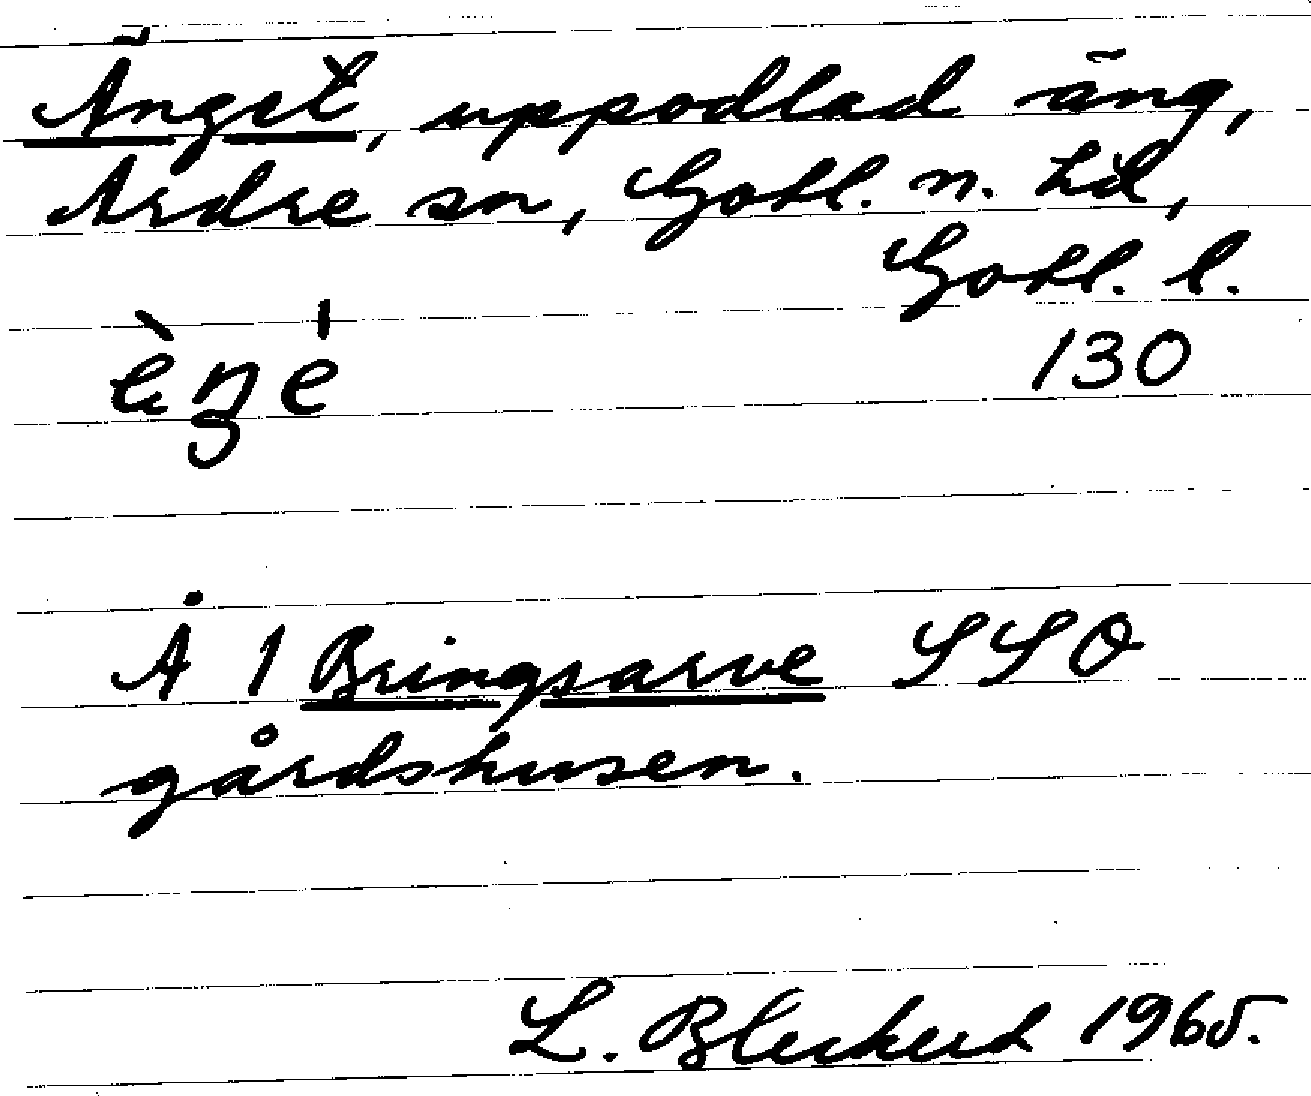 Änget, uppodlad äng,
Ardre sn, Gotl. n. hd,
Gotl. l.
130
Å 1 Bringsarve SSO
gårdshusen.
L. Bleckert 1965.